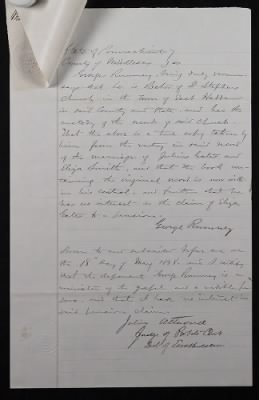 State of Connecticut }
County of Middlesex } ss
George Rumney, being duly sworn
says that he is Rector of St Stephens
Church, in the town of East Haddam
in said County and State, and has the
custody of the record of said Church.
That the above is a true copy taken by
him from the entry in said record
of the marriage of Julius and
Eliza Smith, and that the book
containing the original record is now
in his control, and further that he
has no interest in the claim of Eliza
to a pension.
George Rumney
Sworn to and subscribed before me on
the 18th day of May 1898. and I certify
that the deponent George Rumney is a
minister of the gospel and a credible
and that I have no interest in
said pension claim.
Julius Attwood
Judge of Probate Court
Dist of East Haddam